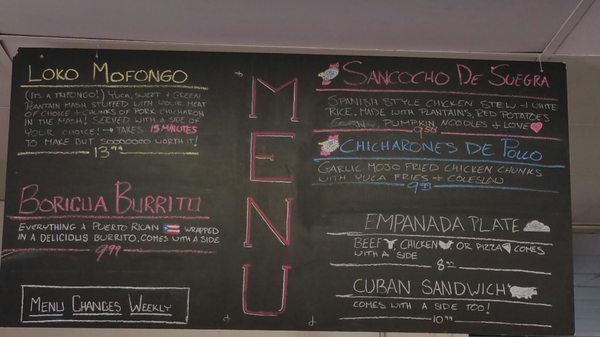 LOKO MOFONGO
(ITS A TRIFONGO!) YUCA, SWEET + GREEN
PLANTAIN MASH STUFFED WITH YOUR MEAT
OF CHOICE + CHUNKS OF PORK CHICHARON
IN THE MASH! SERVED WITH A SIDE OF
YOUR CHOICE! → TAKES 15 MINUTES
TO MAKE BUT SOOOOOOO WORTH IT!
13.99
BORIGUA BURRITO
EVERYTHING A PUERTO RICAN WRAPPED
IN A DELICIOUS BURRITO, COMES WITH A SIDE
9.99
MENU CHANGES WEEKLY
MENU
SANCOCHO DE SUEGRA
SPANISH STYLE CHICKEN STEW + WHITE
RICE, MADE WITH PLANTAINS, RED POTATOES
CORN PUMPKIN NOODLES + LOVE
9.50
CHICHARONES DE POLLO
GARLIC MOJO FRIED CHICKEN CHUNKS
WITH YUCA FRIES + COLESLAW
9.99
EMPANADA PLATE
BEEF CHICKEN OR PIZZA COMES
WITH A SIDE
8.00
CUBAN SANDWICH
COMES WITH A SIDE TOO!
10.99